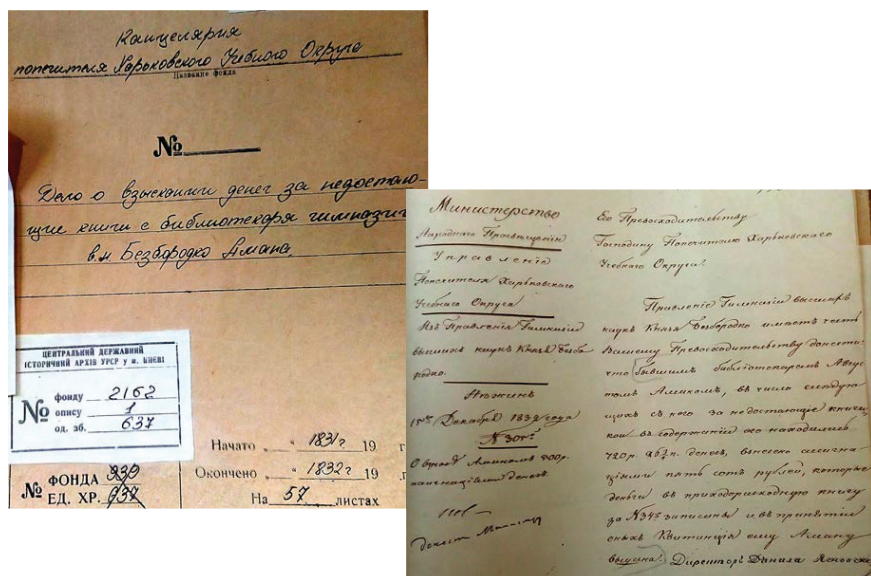 Канцелярия
попечителя Харьковского Учебного Округа
Название фонда
№
Дело о взыскании денег за недостаю-
щие книги с библиотекаря гимназии
в.н. Безбородко Амана.
ЦЕНТРАЛЬНИЙ ДЕРЖАВНИЙ
ІСТОРИЧНИЙ АРХІВ УРСР у м. КИЄВІ
№
фонду 2162
опису 1
од. зб. 637
Начато " 1831г 19 г
Окончено " 1832г 19
На 57 листах
№ ФОНДА 939
ЕД. ХР. 637
Министерство
Народнаго Просвѣщенія
Управленіе
Попечителя Харьковскаго
Учебнаго Округа
Изъ Правленія Гимназіи
вышихъ наукъ Князя Безбо
родко.
Нѣжинъ
15го Декабря 1832 года
№ 301
О взносѣ Аманомъ 500р.
ассигнаціями денегъ
Его Превосходительству
Господину Попечителю Харьковскаго
Учебнаго Округа.
Правленіе Гимназіи высшихъ
наукъ Князя Безбородко имѣетъ честь
Вашему Превосходительству донести:
что бывшимъ библіотекаремъ Авгус
томъ Аманомъ, въ число следую
щихъ съ него за недостающіе книги
кои въ содержаніи его находились
720р. денегъ, внесено ассигна
ціями пять сотъ рублей, которые
деньги въ приходорасходную книгу
за №345 записаны и въ принятіи
оныхъ Квитанція ему Аману
выдана. Директоръ Данила Ясновскій